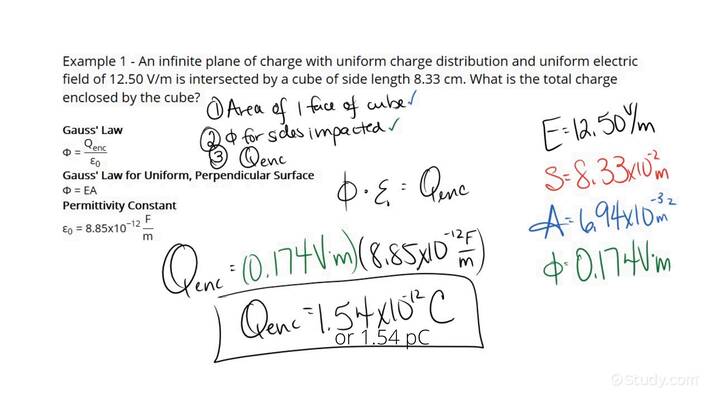 Example 1 - An infinite plane of charge with uniform charge distribution and uniform electric
field of 12.50 V/m is intersected by a cube of side length 8.33 cm. What is the total charge
enclosed by the cube?
① Area of 1 face of cube ✓
② Φ for sides impacted ✓
③ Qenc
Gauss' Law
Φ = Qenc/ε₀
Gauss' Law for Uniform, Perpendicular Surface
Φ = EA
Permittivity Constant
ε₀ = 8.85x10⁻¹² F/m
Φ · ε = Qenc
Qenc = (0.174 V·m)(8.85x10⁻¹² F/m)
Qenc = 1.54x10⁻¹² C
or 1.54 pC
E = 12.50 V/m
S = 8.33x10⁻² m
A = 6.94x10⁻³ m²
Φ = 0.174 V·m
Study.com